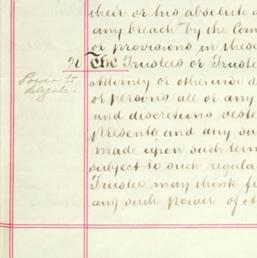 their or his absolute
any breach by the Com
or provisions in these
26 The Trustees or Truste
Power to
delegate
Attorney or otherwise d
or persons all or any
and discretions veste
presents and any su
made upon such term
subject to such regula
Trustee may think f
any such power of A